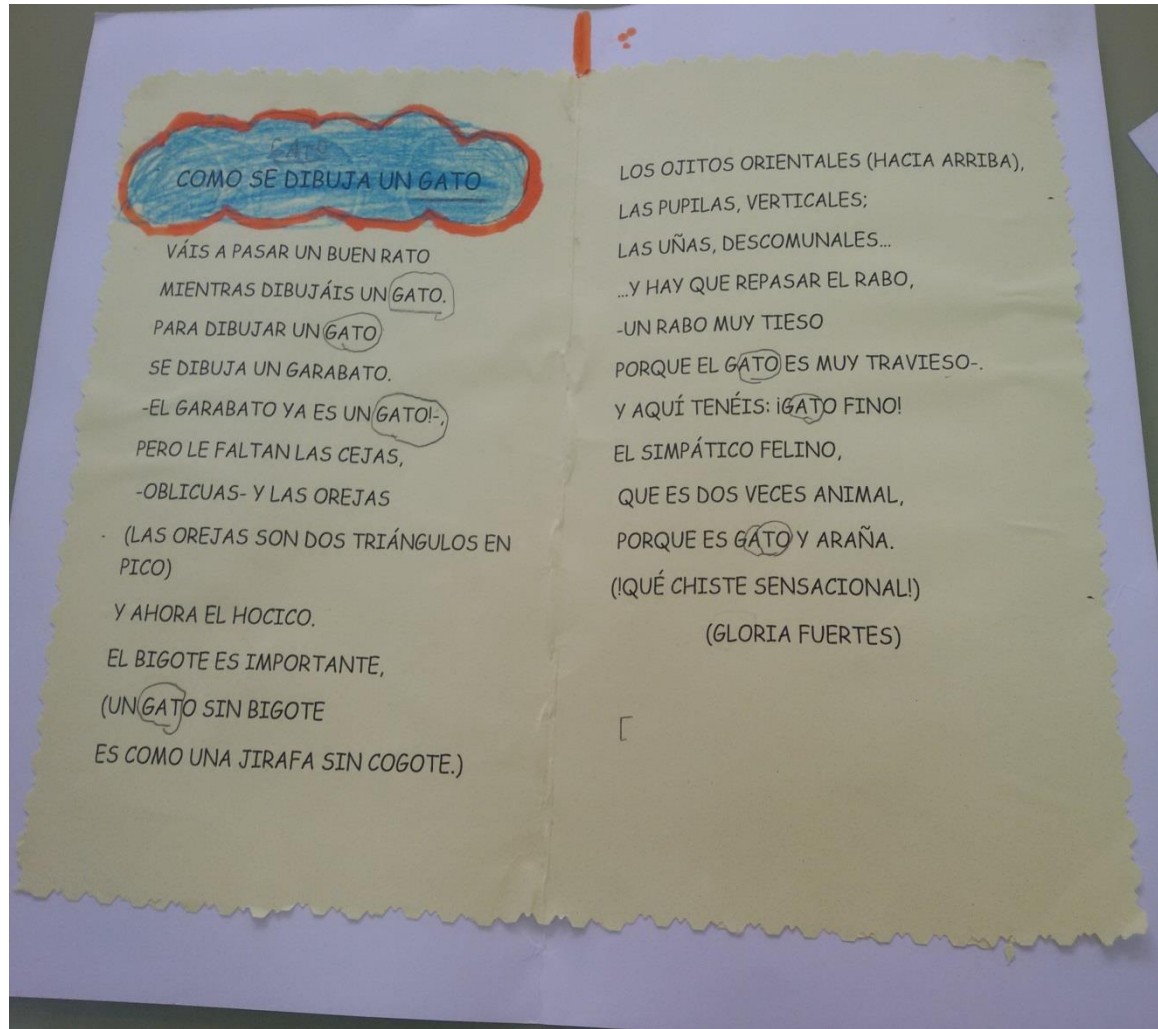 GATO
COMO SE DIBUJA UN GATO
VÁIS A PASAR UN BUEN RATO
MIENTRAS DIBUJÁIS UN GATO.
PARA DIBUJAR UN GATO
SE DIBUJA UN GARABATO.
-EL GARABATO YA ES UN GATO!-,
PERO LE FALTAN LAS CEJAS,
-OBLICUAS- Y LAS OREJAS
(LAS OREJAS SON DOS TRIÁNGULOS EN
PICO)
Y AHORA EL HOCICO.
EL BIGOTE ES IMPORTANTE,
(UN GATO SIN BIGOTE
ES COMO UNA JIRAFA SIN COGOTE.)
LOS OJITOS ORIENTALES (HACIA ARRIBA),
LAS PUPILAS, VERTICALES;
LAS UÑAS, DESCOMUNALES...
...Y HAY QUE REPASAR EL RABO,
-UN RABO MUY TIESO
PORQUE EL GATO ES MUY TRAVIESO-.
Y AQUÍ TENÉIS: ¡GATO FINO!
EL SIMPÁTICO FELINO,
QUE ES DOS VECES ANIMAL,
PORQUE ES GATO Y ARAÑA.
(!QUÉ CHISTE SENSACIONAL!)
(GLORIA FUERTES)